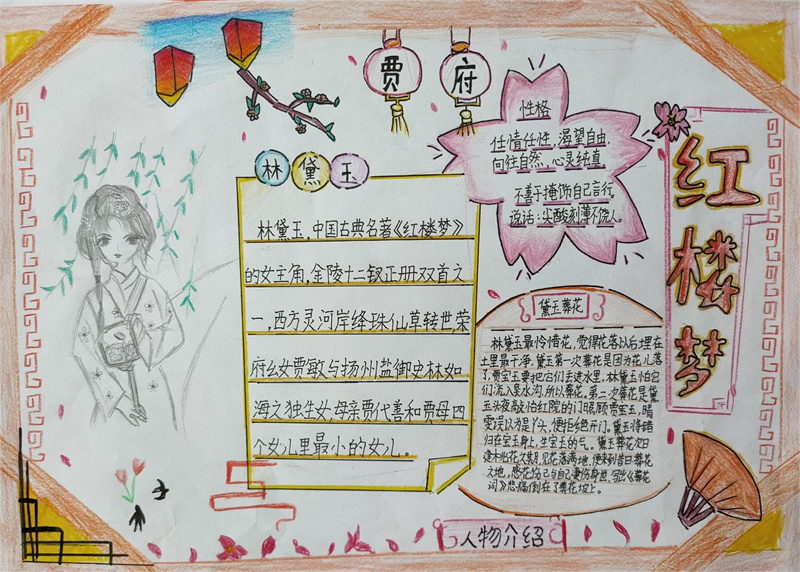 贾府
红楼梦
性格
任情任性，渴望自由，
向往自然，心灵纯真，
不善于掩饰自己言行，
说话：尖酸刻薄不饶人。
林黛玉
林黛玉，中国古典名著《红楼梦》
的女主角，金陵十二钗正册双首之
一，西方灵河岸绛珠仙草转世，荣
府幺女贾敏与扬州盐御史林如
海之独生女，母亲贾代善和贾母四
个女儿里最小的女儿。
黛玉葬花
林黛玉最怜惜花，觉得花落以后埋在
土里最干净，黛玉第一次葬花是因为花儿落
了，贾宝玉要把它们丢进水里，林黛玉怕它
们流入臭水沟，所以葬花。第二次葬花是黛
玉头夜敲怡红院的门
雯误以为是丫头，便拒绝开门。黛玉将错
归在宝玉身上，生宝玉的气。黛玉葬花次日
见花落满地，便来到昔日葬花
之地，感花伤己与自己凄伤身世，写出《葬花
词》悲痛倒在了葬花坡上。
人物介绍